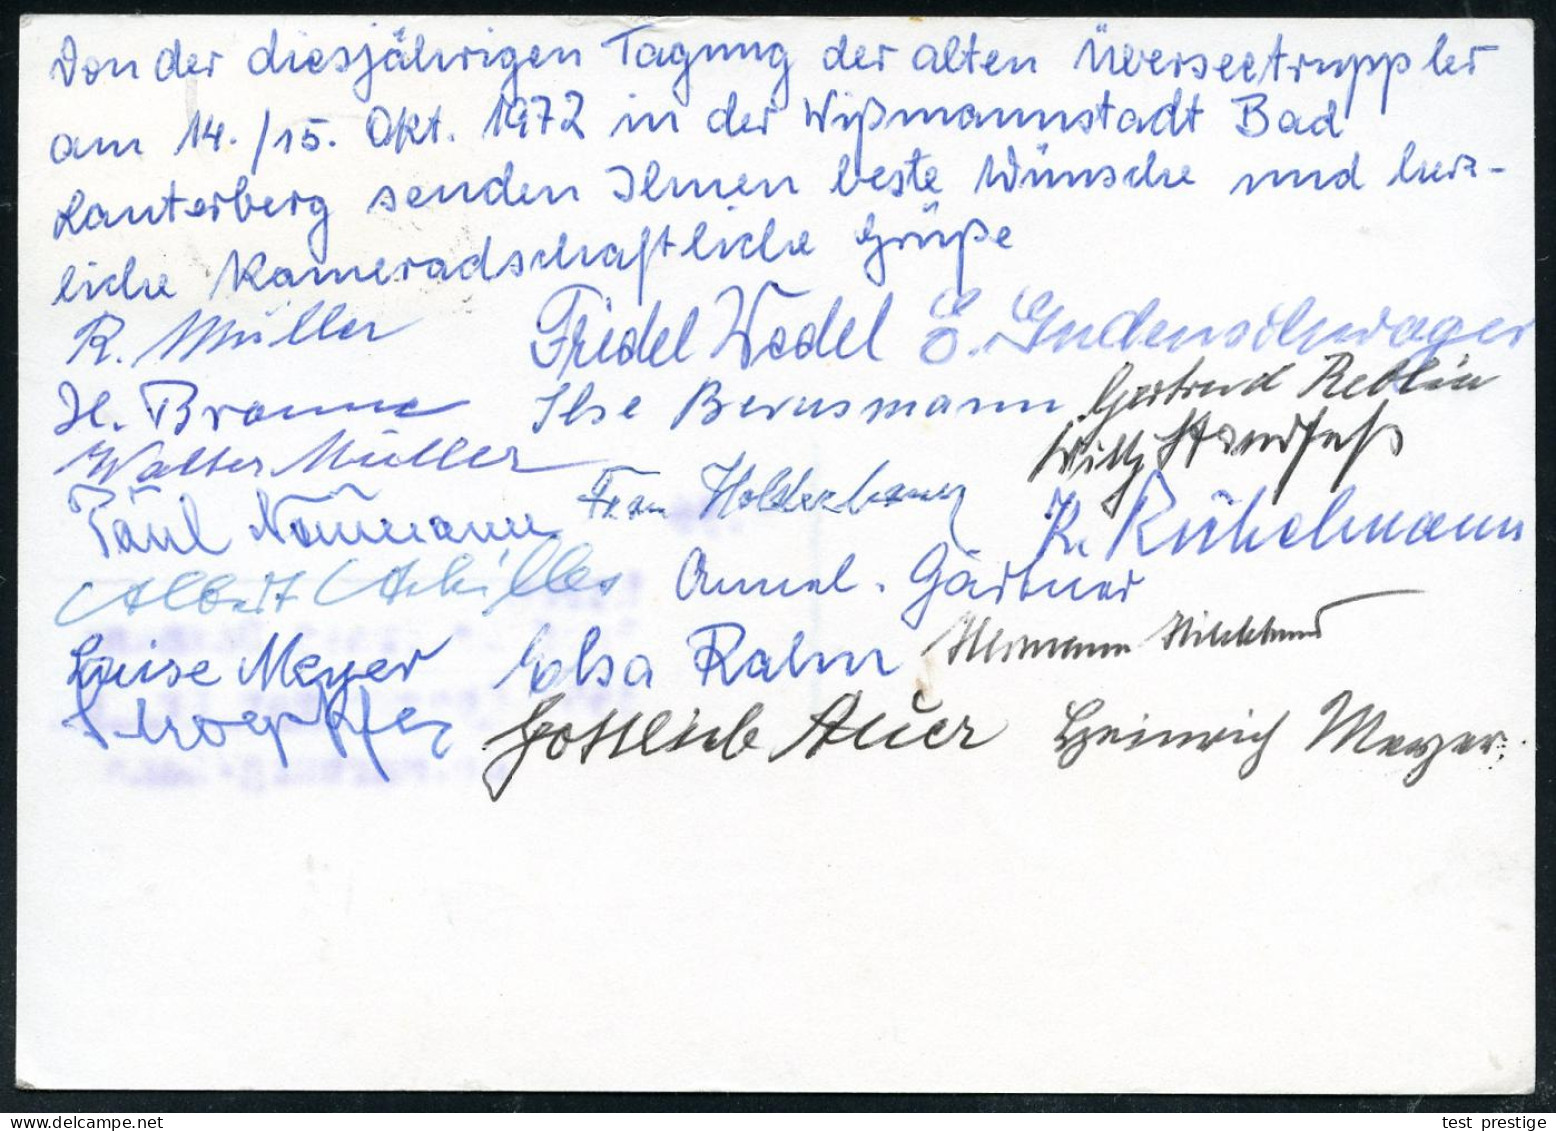 Von der diesjährigen Tagung der alten Überseetruppler
am 14./15. Okt. 1972 in der Wißmannstadt Bad
Lauterberg senden Ihnen beste Wünsche und herz-
liche Kameradschaftliche Grüße
R. Müller Friedel Wedel E. Gudenschwager
H. Braune Ilse Bernsmann Gertrud Reblin
Walter Müller Willy Handfaß
Paul Naumann Frau K. Rühelmann
Albert Achilles Annel. Gärtner
Luise Meyer Elsa Rahn Hermann
Gottlieb Auer Heinrich Meyer.
test_prestige